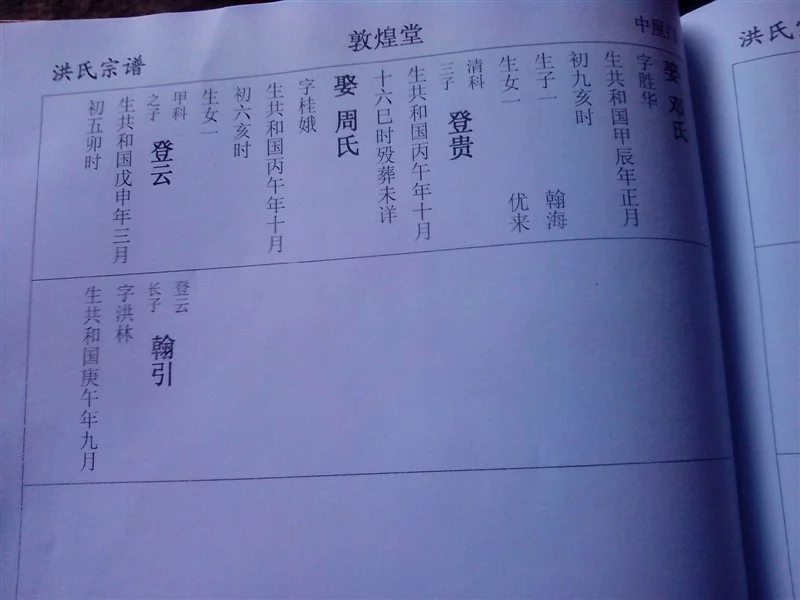 洪氏宗谱
敦煌堂
中屋门
娶 邓氏
字胜华
生共和国甲辰年正月
初九亥时
生子一 翰海
生女一 优来
清科
三子
登贵
生共和国丙午年十月
十六巳时殁葬未详
娶 周氏
字桂娥
生共和国丙午年十月
初六亥时
生女一
甲科
之子
登云
生共和国戊申年三月
初五卯时
登云
长子
翰引
字洪林
生共和国庚午年九月
洪氏